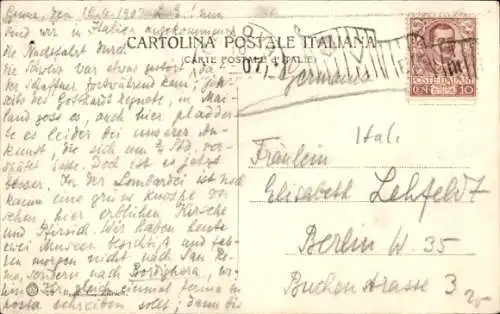 Genua, den 10.4.1907
sind wir in Italien angekommen
die Nachtfahrt durch
die Schweiz war etwas gestört, da
der Schaffner fortwährend kam; jen-
seits des Gotthardt regnete, in Mai-
land goss es, auch hier pladder
te es leider bei unserer An-
kunft, die sich um ½ Std. ver-
spätet hatte. Doch ist es jetzt
besser. In der Lombardei ist noch
kaum eine grüne Knospe zu
sehen, hier erblühen Kirsche
und Pfirsich. Wir haben heute
zwei Museen besichtigt und fah-
ren morgen nicht nach San Re-
mo, sondern nach Bordighera, wo-
hin Ihr gleich einmal ferma in
posta schreiben sollt; denn bis
CARTOLINA POSTALE ITALIANA
(CARTE POSTALE d'ITALIE)
Germania
POSTE ITALIANE
CENT. 10
Ital.
Fräulein
Elisabeth Lehfeldt
Berlin W. 35
Buchen Strasse 3